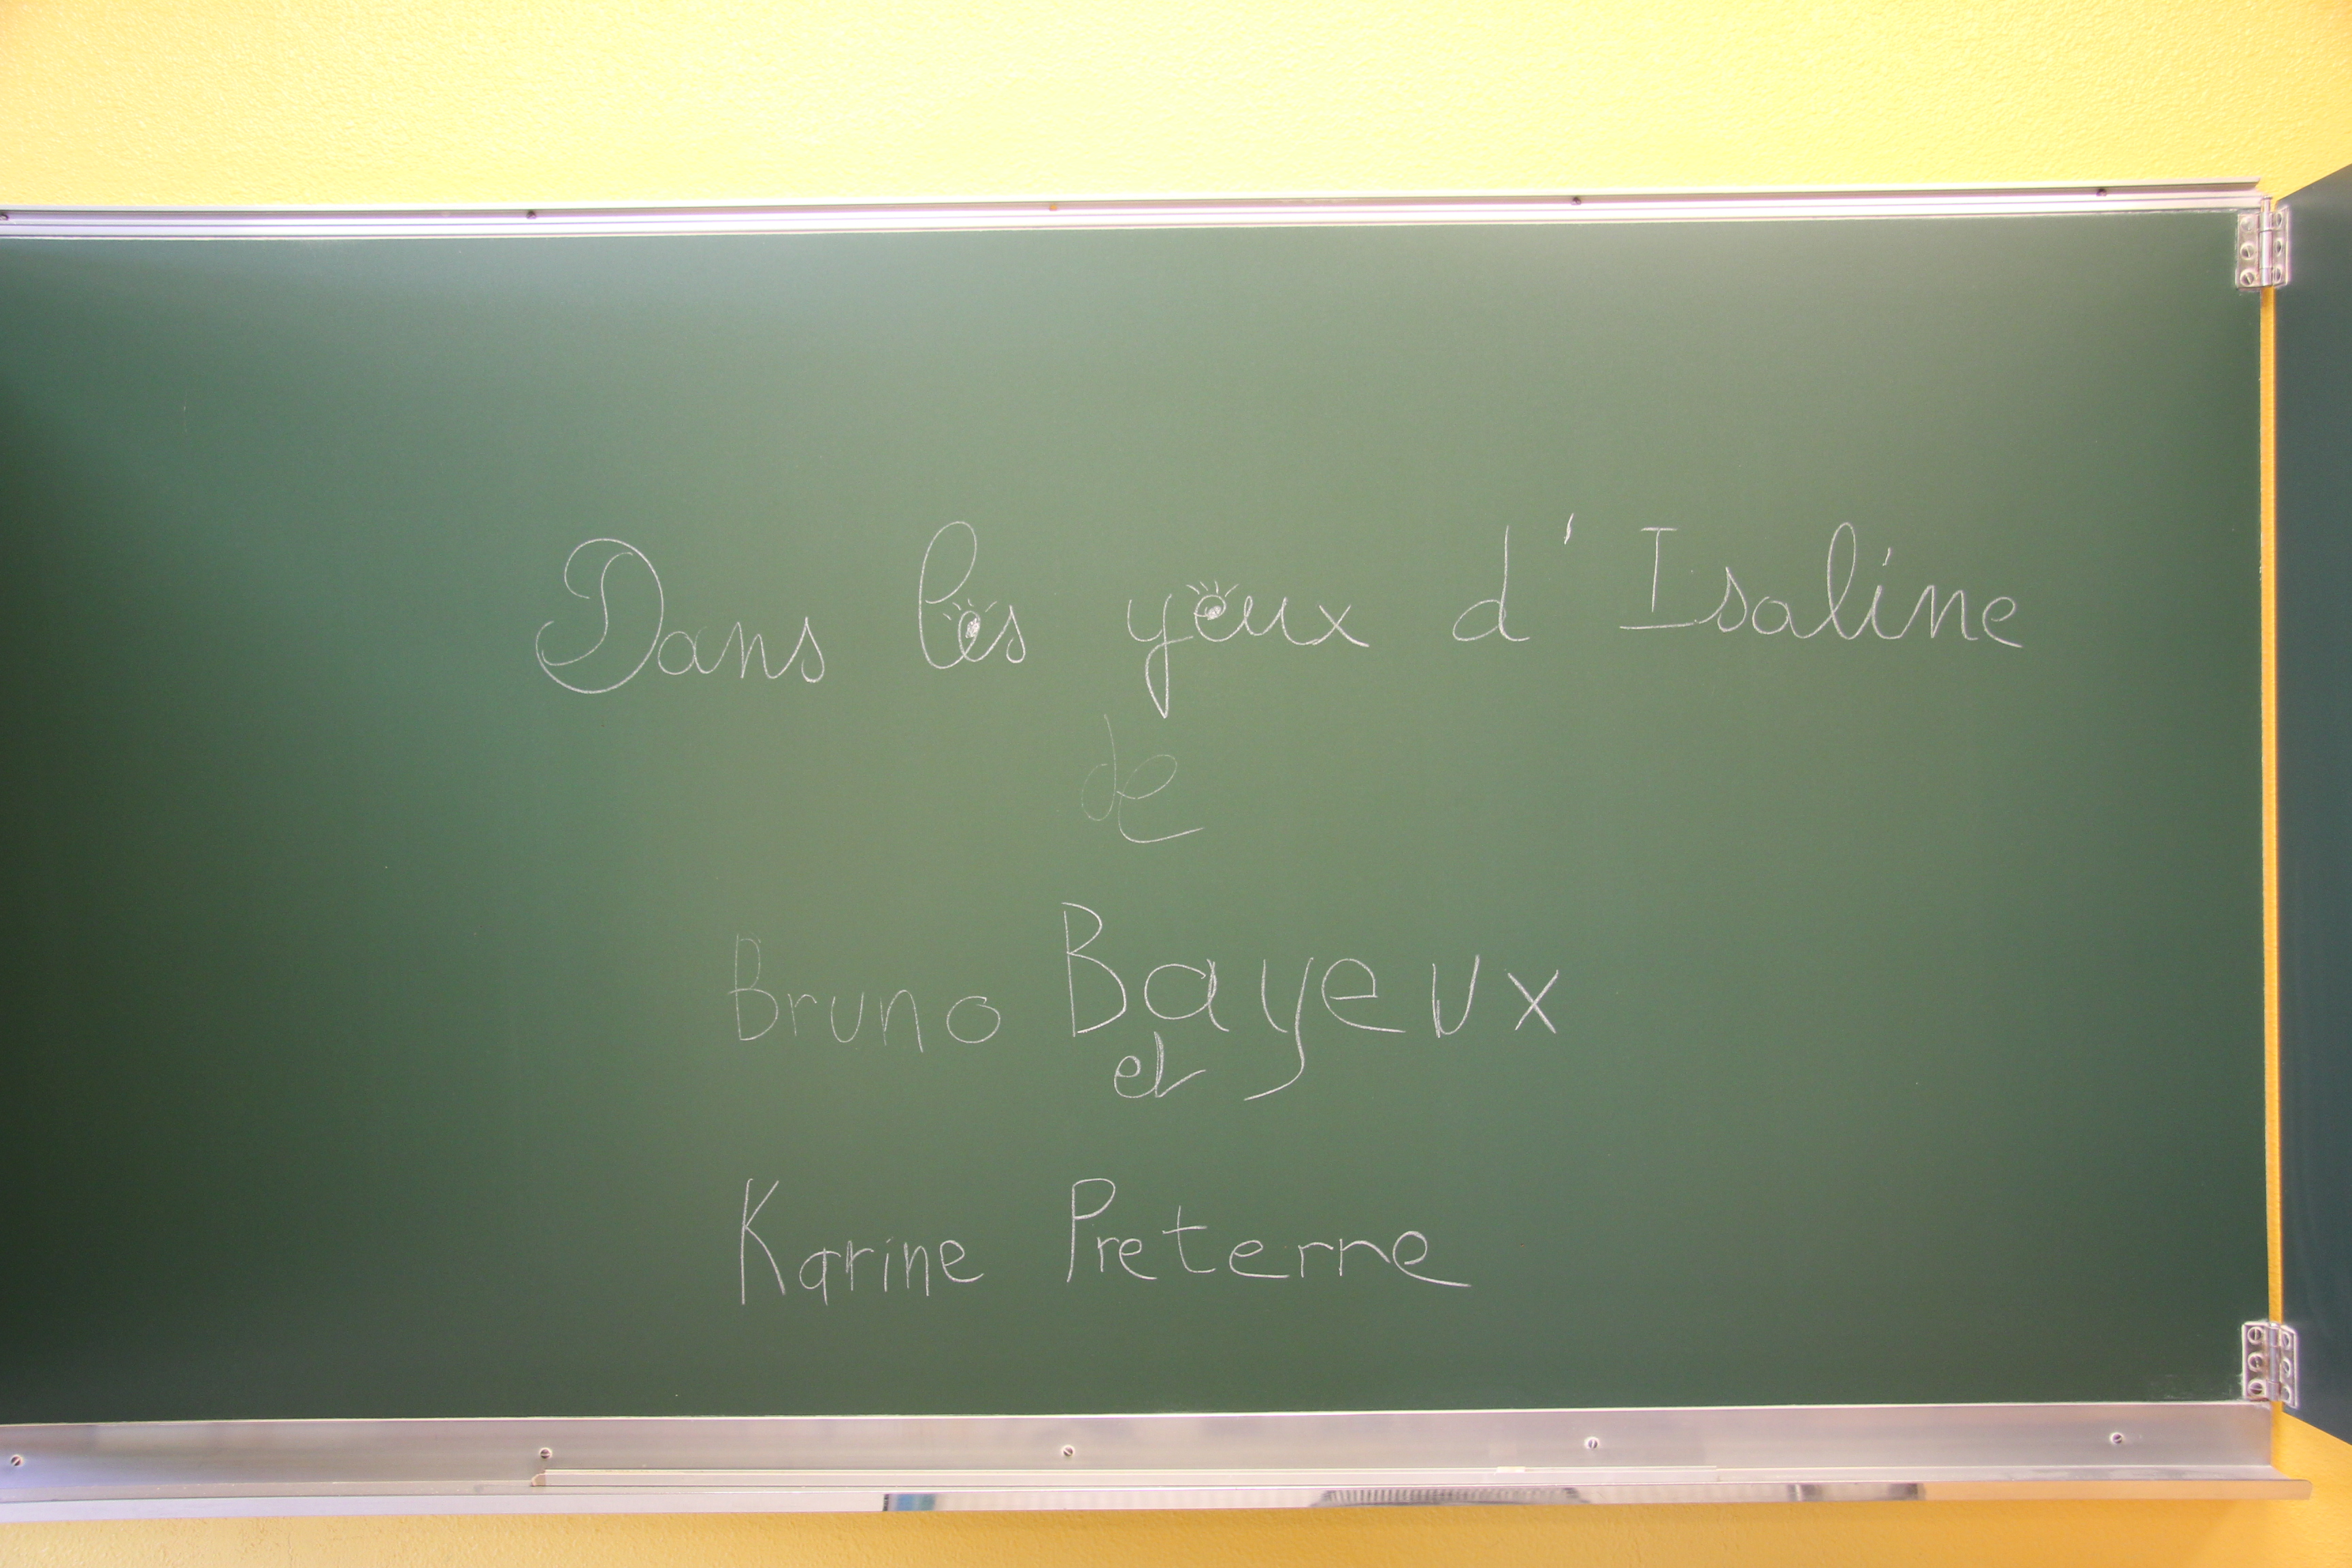 Dans les yeux d'Isaline
de
Bruno Bayeux
et
Karine Preterre